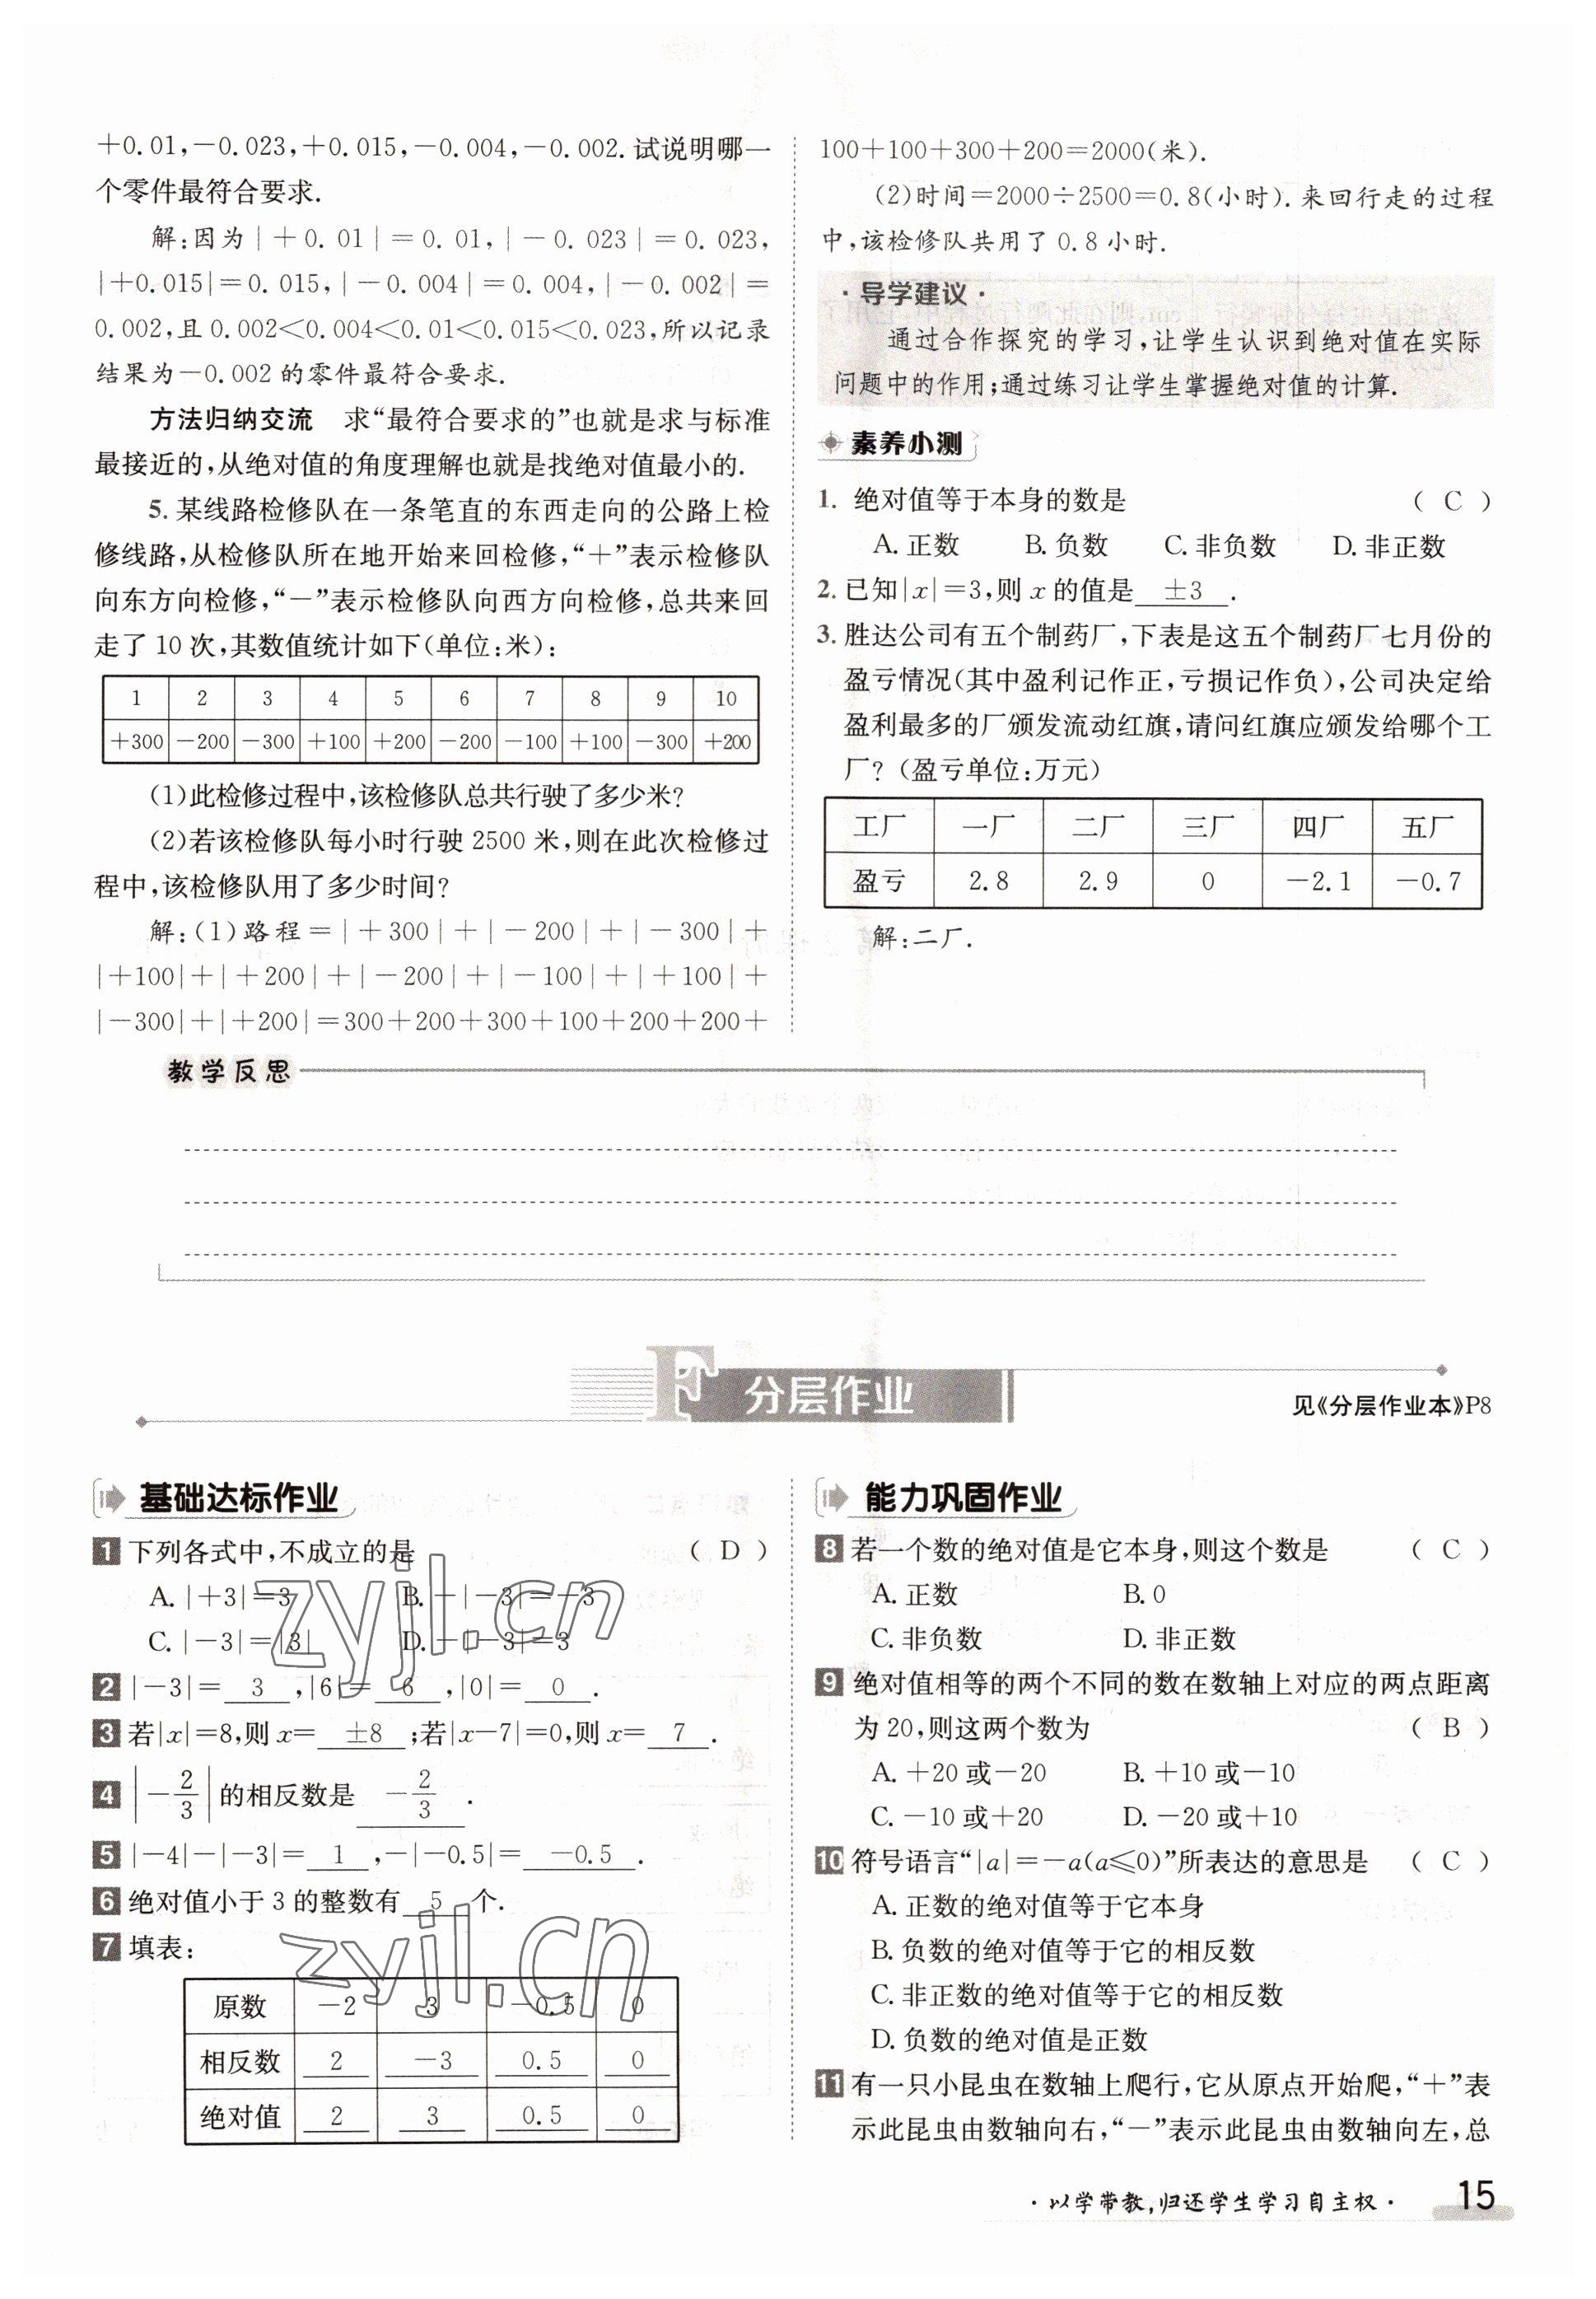 +0.01,-0.023,+0.015,-0.004,-0.002.试说明哪一
个零件最符合要求.
解:因为|+0.01|=0.01,|-0.023|=0.023,
|+0.015|=0.015,|-0.004|=0.004,|-0.002|=
0.002,且0.002<0.004<0.01<0.015<0.023,所以记录
结果为-0.002的零件最符合要求.
方法归纳交流 求“最符合要求的”也就是求与标准
最接近的,从绝对值的角度理解也就是找绝对值最小的.
5.某线路检修队在一条笔直的东西走向的公路上检
修线路,从检修队所在地开始来回检修,“+”表示检修队
向东方向检修,“-”表示检修队向西方向检修,总共来回
走了10次,其数值统计如下(单位:米):
1 2 3 4 5 6 7 8 9 10
+300 -200 -300 +100 +200 -200 -100 +100 -300 +200
(1)此检修过程中,该检修队总共行驶了多少米?
(2)若该检修队每小时行驶2500米,则在此次检修过
程中,该检修队用了多少时间?
解:(1)路程=|+300|+|-200|+|-300|+
|+100|+|+200|+|-200|+|-100|+|+100|+
|-300|+|+200|=300+200+300+100+200+200+
100+100+300+200=2000(米).
(2)时间=2000÷2500=0.8(小时).来回行走的过程
中,该检修队共用了0.8小时.
·导学建议·
通过合作探究的学习,让学生认识到绝对值在实际
问题中的作用;通过练习让学生掌握绝对值的计算.
素养小测
1. 绝对值等于本身的数是 ( C )
A.正数 B.负数 C.非负数 D.非正数
2.已知|x|=3,则x的值是 ±3 .
3.胜达公司有五个制药厂,下表是这五个制药厂七月份的
盈亏情况(其中盈利记作正,亏损记作负),公司决定给
盈利最多的厂颁发流动红旗,请问红旗应颁发给哪个工
厂?(盈亏单位:万元)
工厂 一厂 二厂 三厂 四厂 五厂
盈亏 2.8 2.9 0 -2.1 -0.7
解:二厂.
教学反思
F 分层作业
见《分层作业本》P8
基础达标作业
1 下列各式中,不成立的是 ( D )
A.|+3|=3 B.-|-3|=-3
C.|-3|=|3| D.-|-3|=3
2 |-3|= 3 ,|6|= 6 ,|0|= 0 .
3 若|x|=8,则x= ±8 ;若|x-7|=0,则x= 7 .
4 |-2/3|的相反数是 -2/3 .
5 |-4|-|-3|= 1 ,-|-0.5|= -0.5 .
6 绝对值小于3的整数有 5 个.
7 填表:
原数 -2 3 -0.5 0
相反数 2 -3 0.5 0
绝对值 2 3 0.5 0
能力巩固作业
8 若一个数的绝对值是它本身,则这个数是 ( C )
A.正数 B.0
C.非负数 D.非正数
9 绝对值相等的两个不同的数在数轴上对应的两点距离
为20,则这两个数为 ( B )
A.+20或-20 B.+10或-10
C.-10或+20 D.-20或+10
10 符号语言“|a|=-a(a⩽0)”所表达的意思是 ( C )
A.正数的绝对值等于它本身
B.负数的绝对值等于它的相反数
C.非正数的绝对值等于它的相反数
D.负数的绝对值是正数
11 有一只小昆虫在数轴上爬行,它从原点开始爬,“+”表
示此昆虫由数轴向右,“-”表示此昆虫由数轴向左,总
·以学带教,归还学生学习自主权· 15
zyjl.cn
zyjl.cn